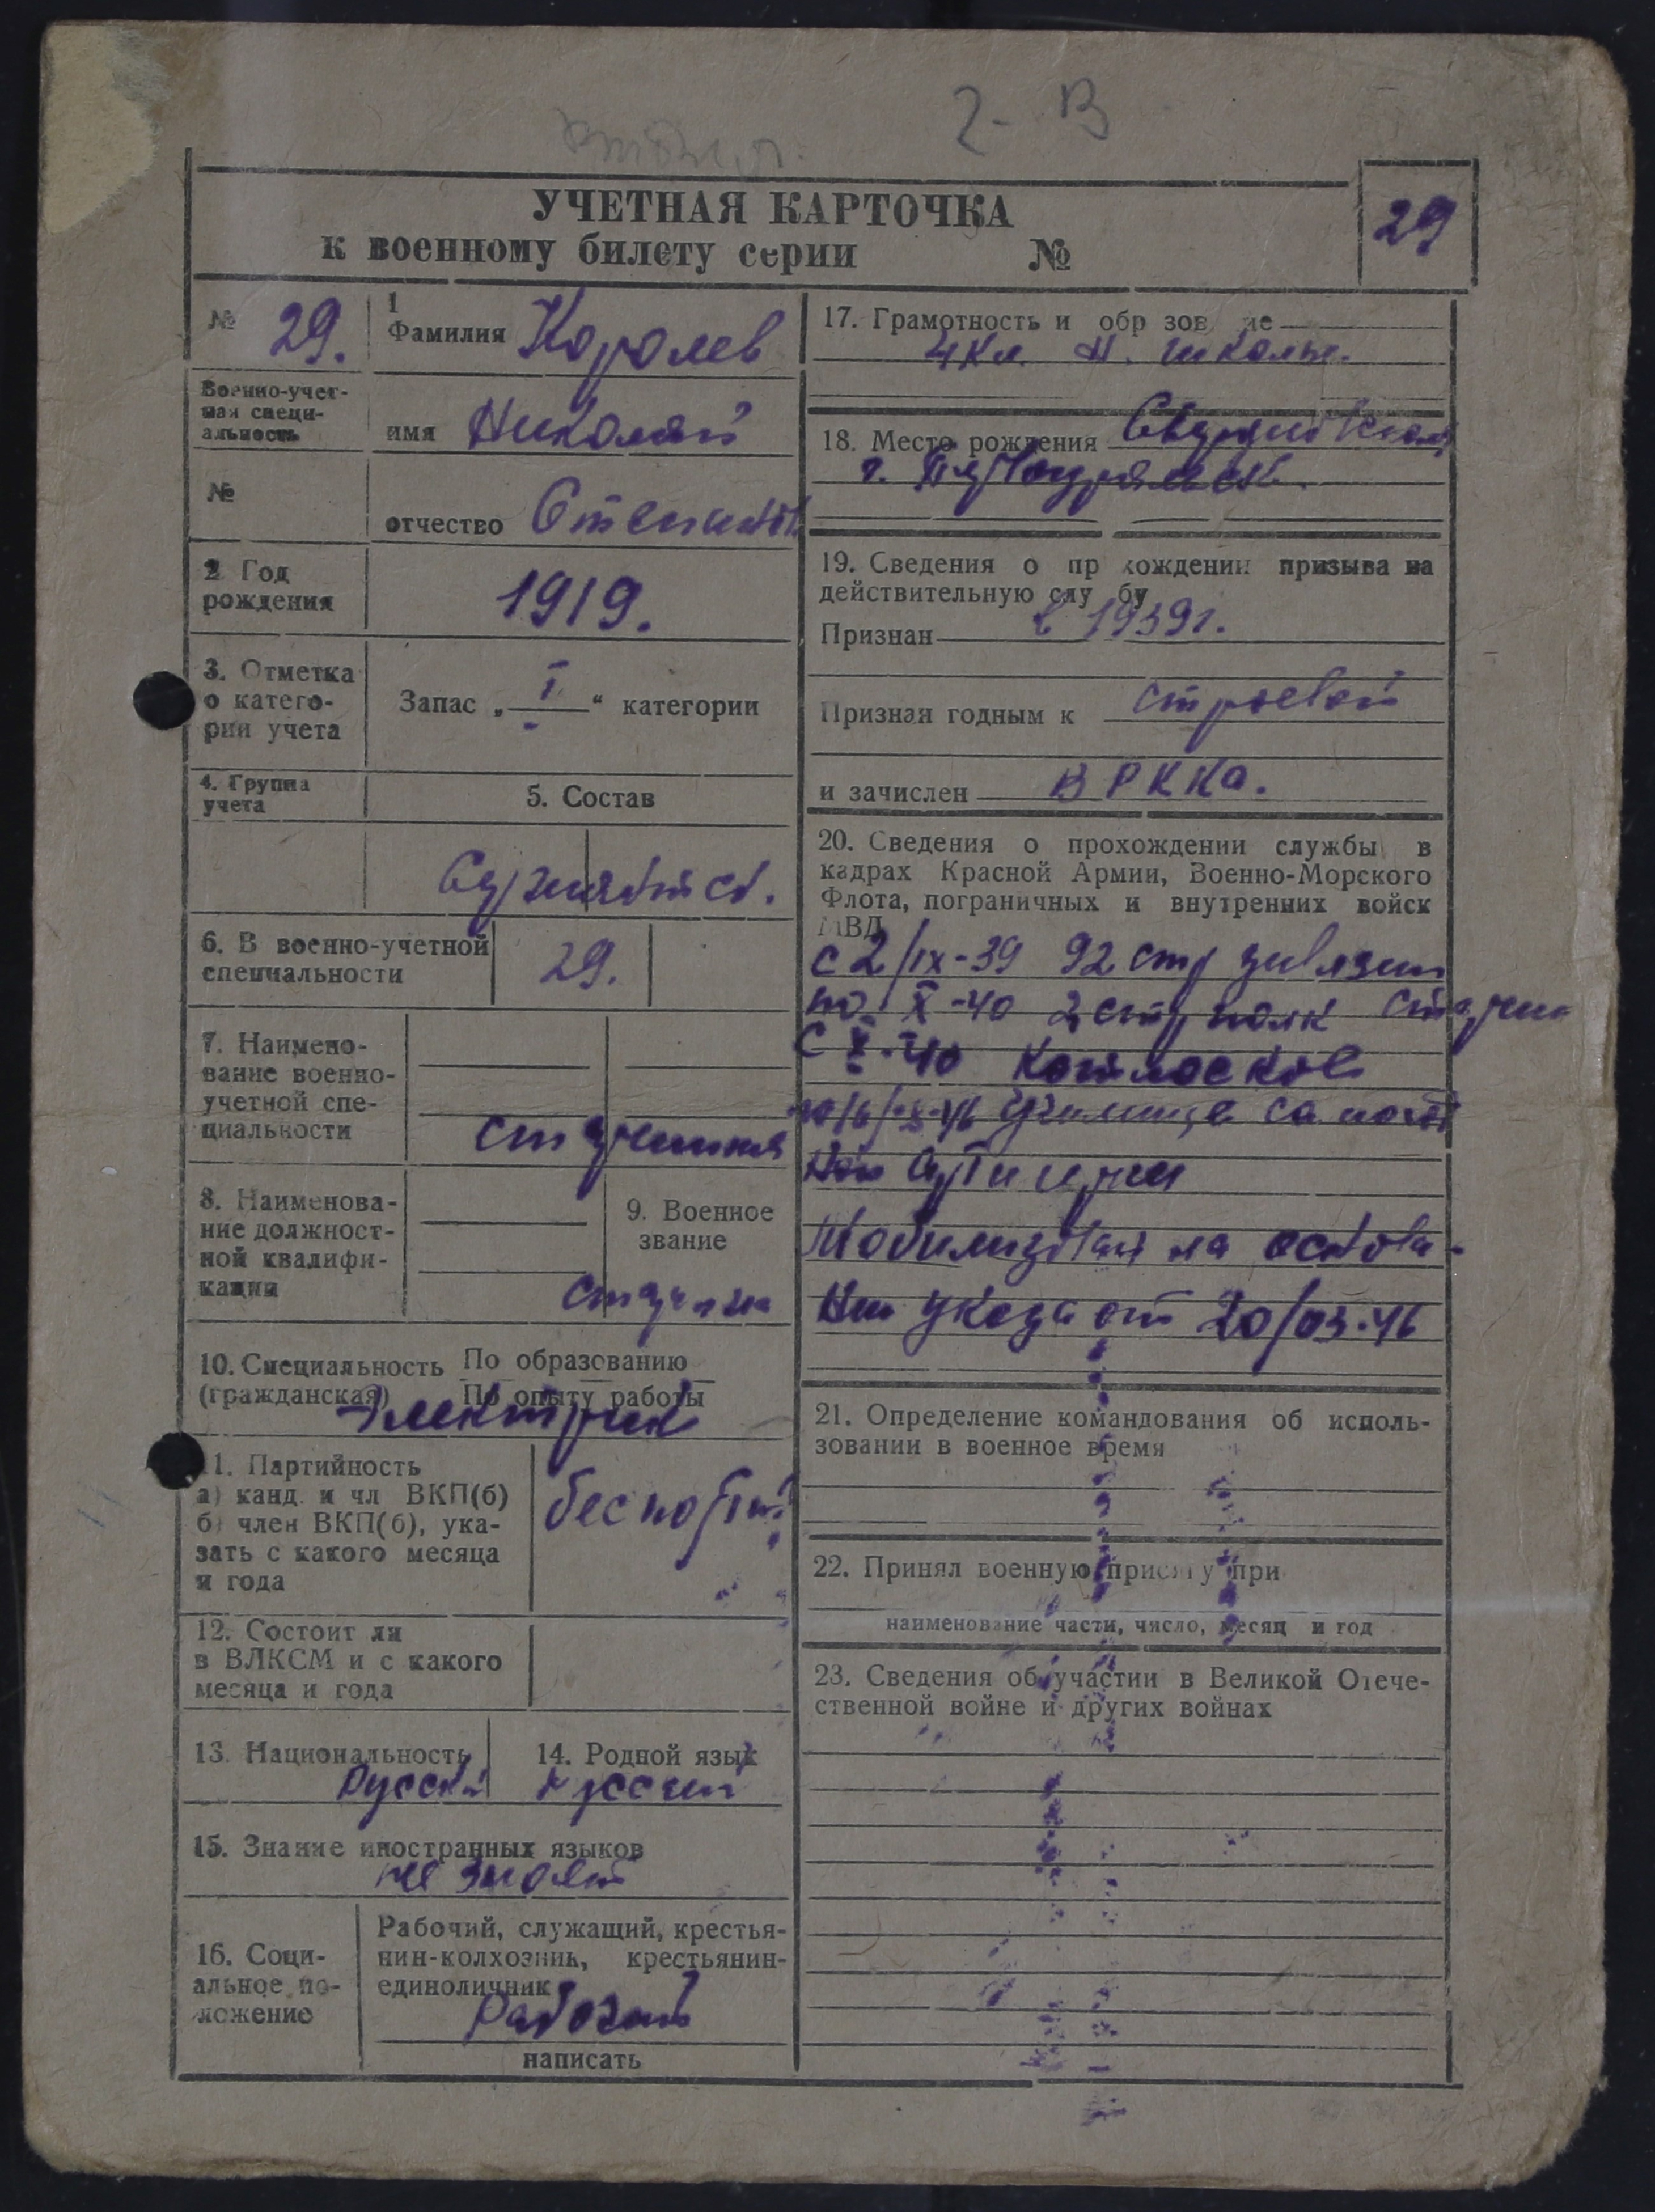 2-В
УЧЕТНАЯ КАРТОЧКА
к военному билету серии №
29
№ 29.
1
Фамилия Королев
Военно-учет-
ная специ-
альность
имя Николай
№
отчество Степанов
2 Год
рождения
1919.
3. Отметка
о катего-
рии учета
Запас „ I “ категории
4. Группа
учета
5. Состав
Сержантск.
6. В военно-учетной
специальности
29.
7. Наимено-
вание военно-
учетной спе-
циальности
старшина
8. Наименова-
ние должност-
ной квалифи-
кации
9. Военное
звание
старшина
10. Специальность По образованию
(гражданская) По опыту работы
Электрик
11. Партийность
а) канд. и чл ВКП(б)
б) член ВКП(б), ука-
зать с какого месяца
и года
беспарт.
12. Состоит ли
в ВЛКСМ и с какого
месяца и года
13. Национальность 14. Родной язык
Русский русский
15. Знание иностранных языков
не знает
16. Соци-
альное по-
ложение
Рабочий, служащий, крестья-
нин-колхозник, крестьянин-
единоличник
Рабочий
написать
17. Грамотность и обр зов ие
4 кл. Н. школы.
18. Место рождения Свердловская
г. Первоуральск.
19. Сведения о пр хождении призыва на
действительную слу бу
Признан в 1939г.
Признан годным к строевой
и зачислен в РККА.
20. Сведения о прохождении службы в
кадрах Красной Армии, Военно-Морского
Флота, пограничных и внутренних войск
МВД
с 2/IX-39 92 стр дивизии
по X-40 2 стр полк старшин
с X-40
училище самоход
ной артилерии
Мобилизован на основа-
нии указа от 20/03-46
21. Определение командования об исполь-
зовании в военное время
22. Принял военную присягу при
наименование части, число, месяц и год
23. Сведения об участии в Великой Отече-
ственной войне и других войнах